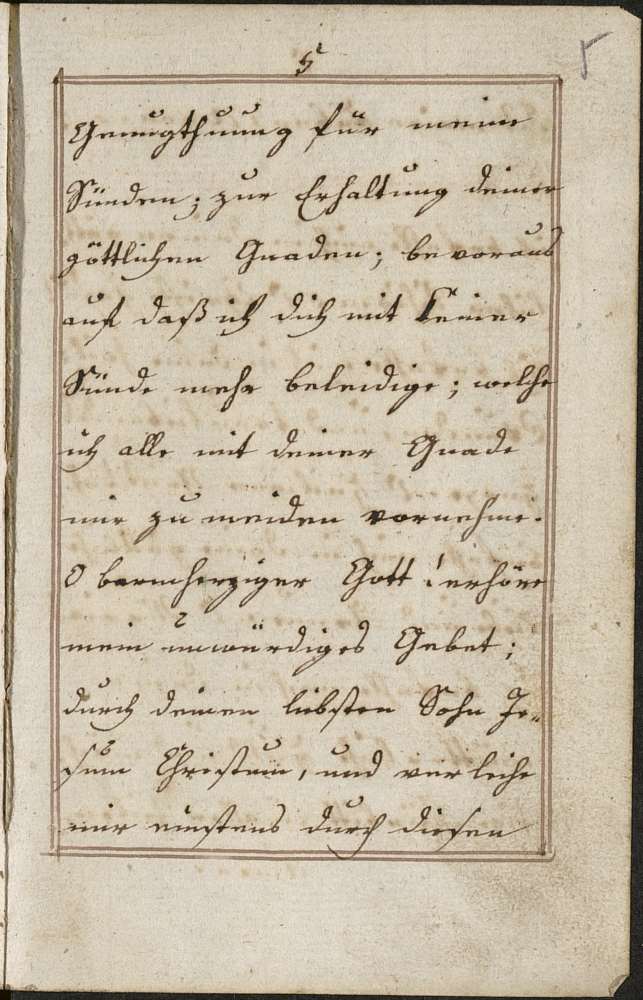 5
5
Genugthuung für meine
Sünden; zur Erhaltung deiner
göttlichen Gnaden; bevoraus
auf daß ich dich mit keiner
Sünde mehr beleidige; welche
ich alle mit deiner Gnade
mir zu meiden vornehme.
O barmherziger Gott! erhöre
mein unwürdiges Gebet;
durch deinen liebsten Sohn Je„
sum Christum, und verleihe
mir einstens durch diesen